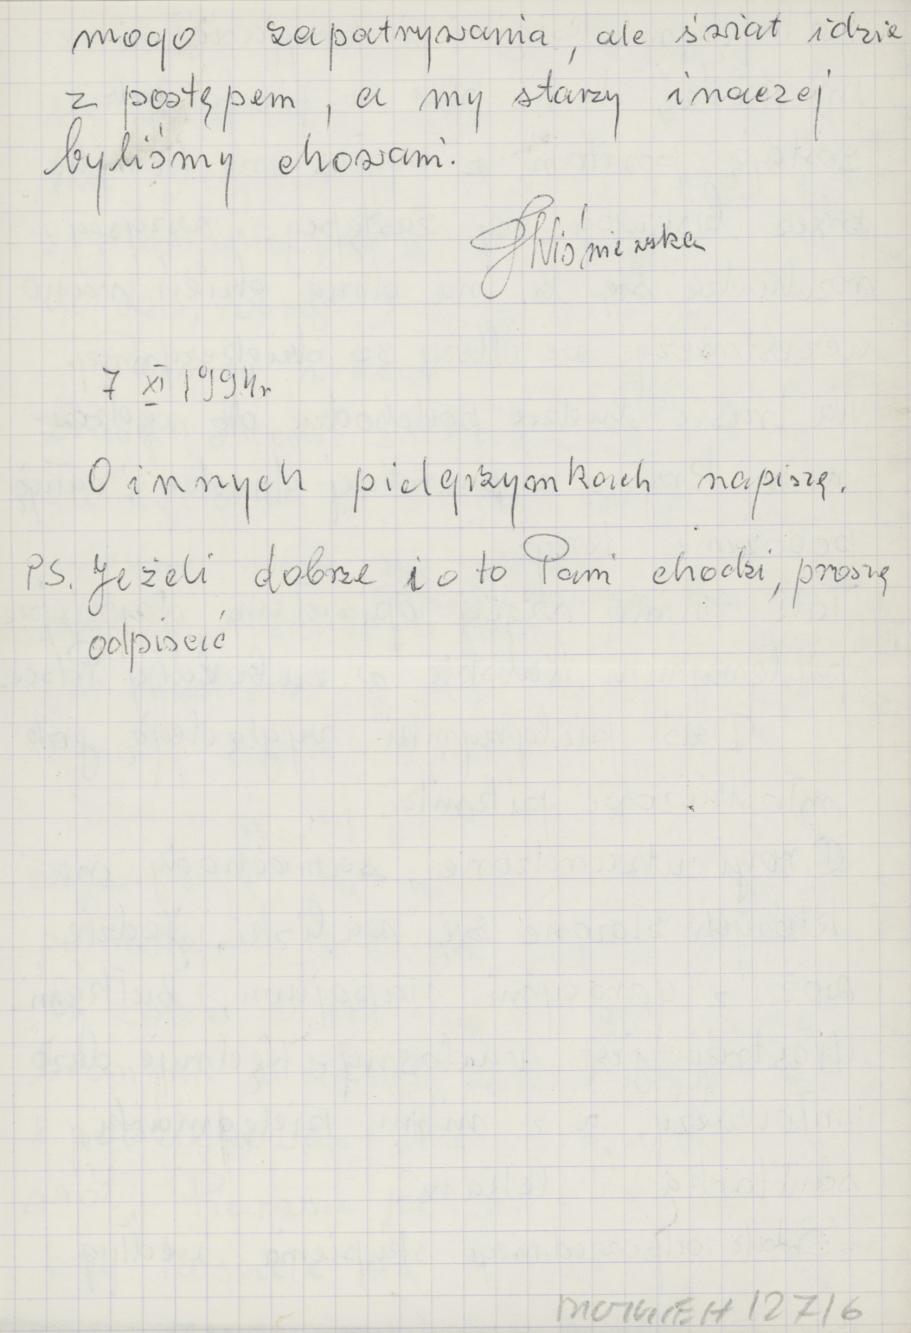 mogo zapatrywania, ale świat idzie
z postępem, a my starzy inaczej
byliśmy chowani.
Wiśniewska
7 XI 1994r
O innych pielgrzymkach napiszę.
PS. Jeżeli dobrze i o to Pani chodzi, proszę
odpisać
127/6